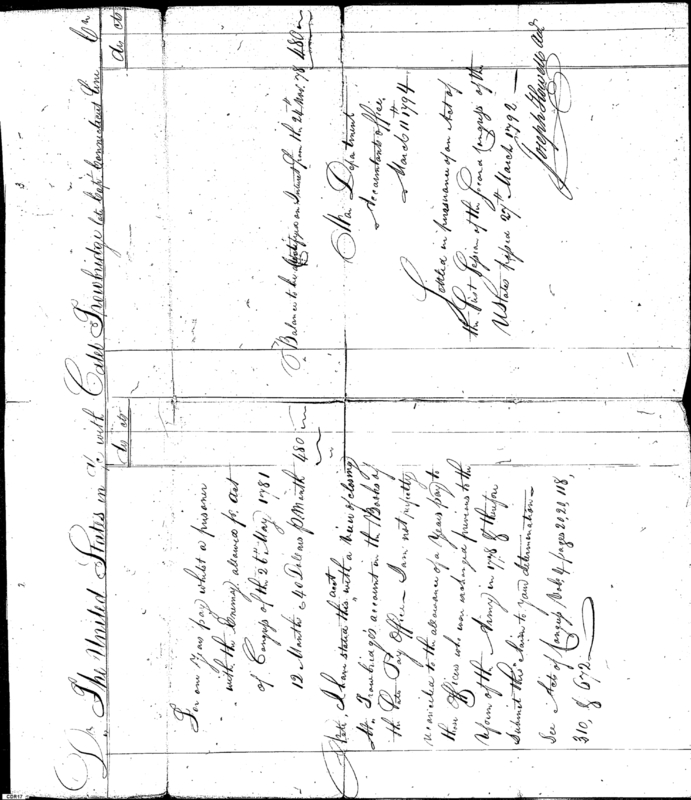 Dr. The United States in a/c with Caleb Trowbridge late Capt. Connecticut Line Cr.
Ds cts
For one Years pay whilst a prisoner
with the Enemy allowed pr. Act
of Congress of the 26th May 1781
12 Months @ 40 Dollars p Month 480
Note, I have stated this acct with a view of closing
Mr. Trowbridge's account in the Books of
the late Pay Office - I am not perfectly
reconciled to the allowance of a Years pay to
those Officers who were exchanged previous to the
Reform of the Army in 1778 & therefore
Submit this claim to your determination -
See Acts of Congress Vol. 4 pages 20, 29, 118,
310, & 672
Ds cts
Balance to be Certified on Interest from the 24th Novr. 78 480
War Department
Accountants office,
March 11th 1794
Settled in pursuance of an Act of
the first Session of the second Congress of the
U States passed 27th March 1792 -
Joseph Howell Acct
CDR17